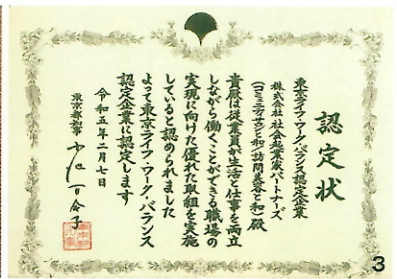 認定状
東京ライフ・ワーク・バランス認定企業
株式会社 社会起業家パートナーズ
(コミュニティサロン和/訪問美容と和)殿
貴殿は従業員が生活と仕事を両立
しながら働くことができる職場の
実現に向けた優れた取組を実施
していると認められました
よって東京ライフ・ワーク・バランス
認定企業に認定します
令和五年二月七日
東京都知事 小池百合子
3